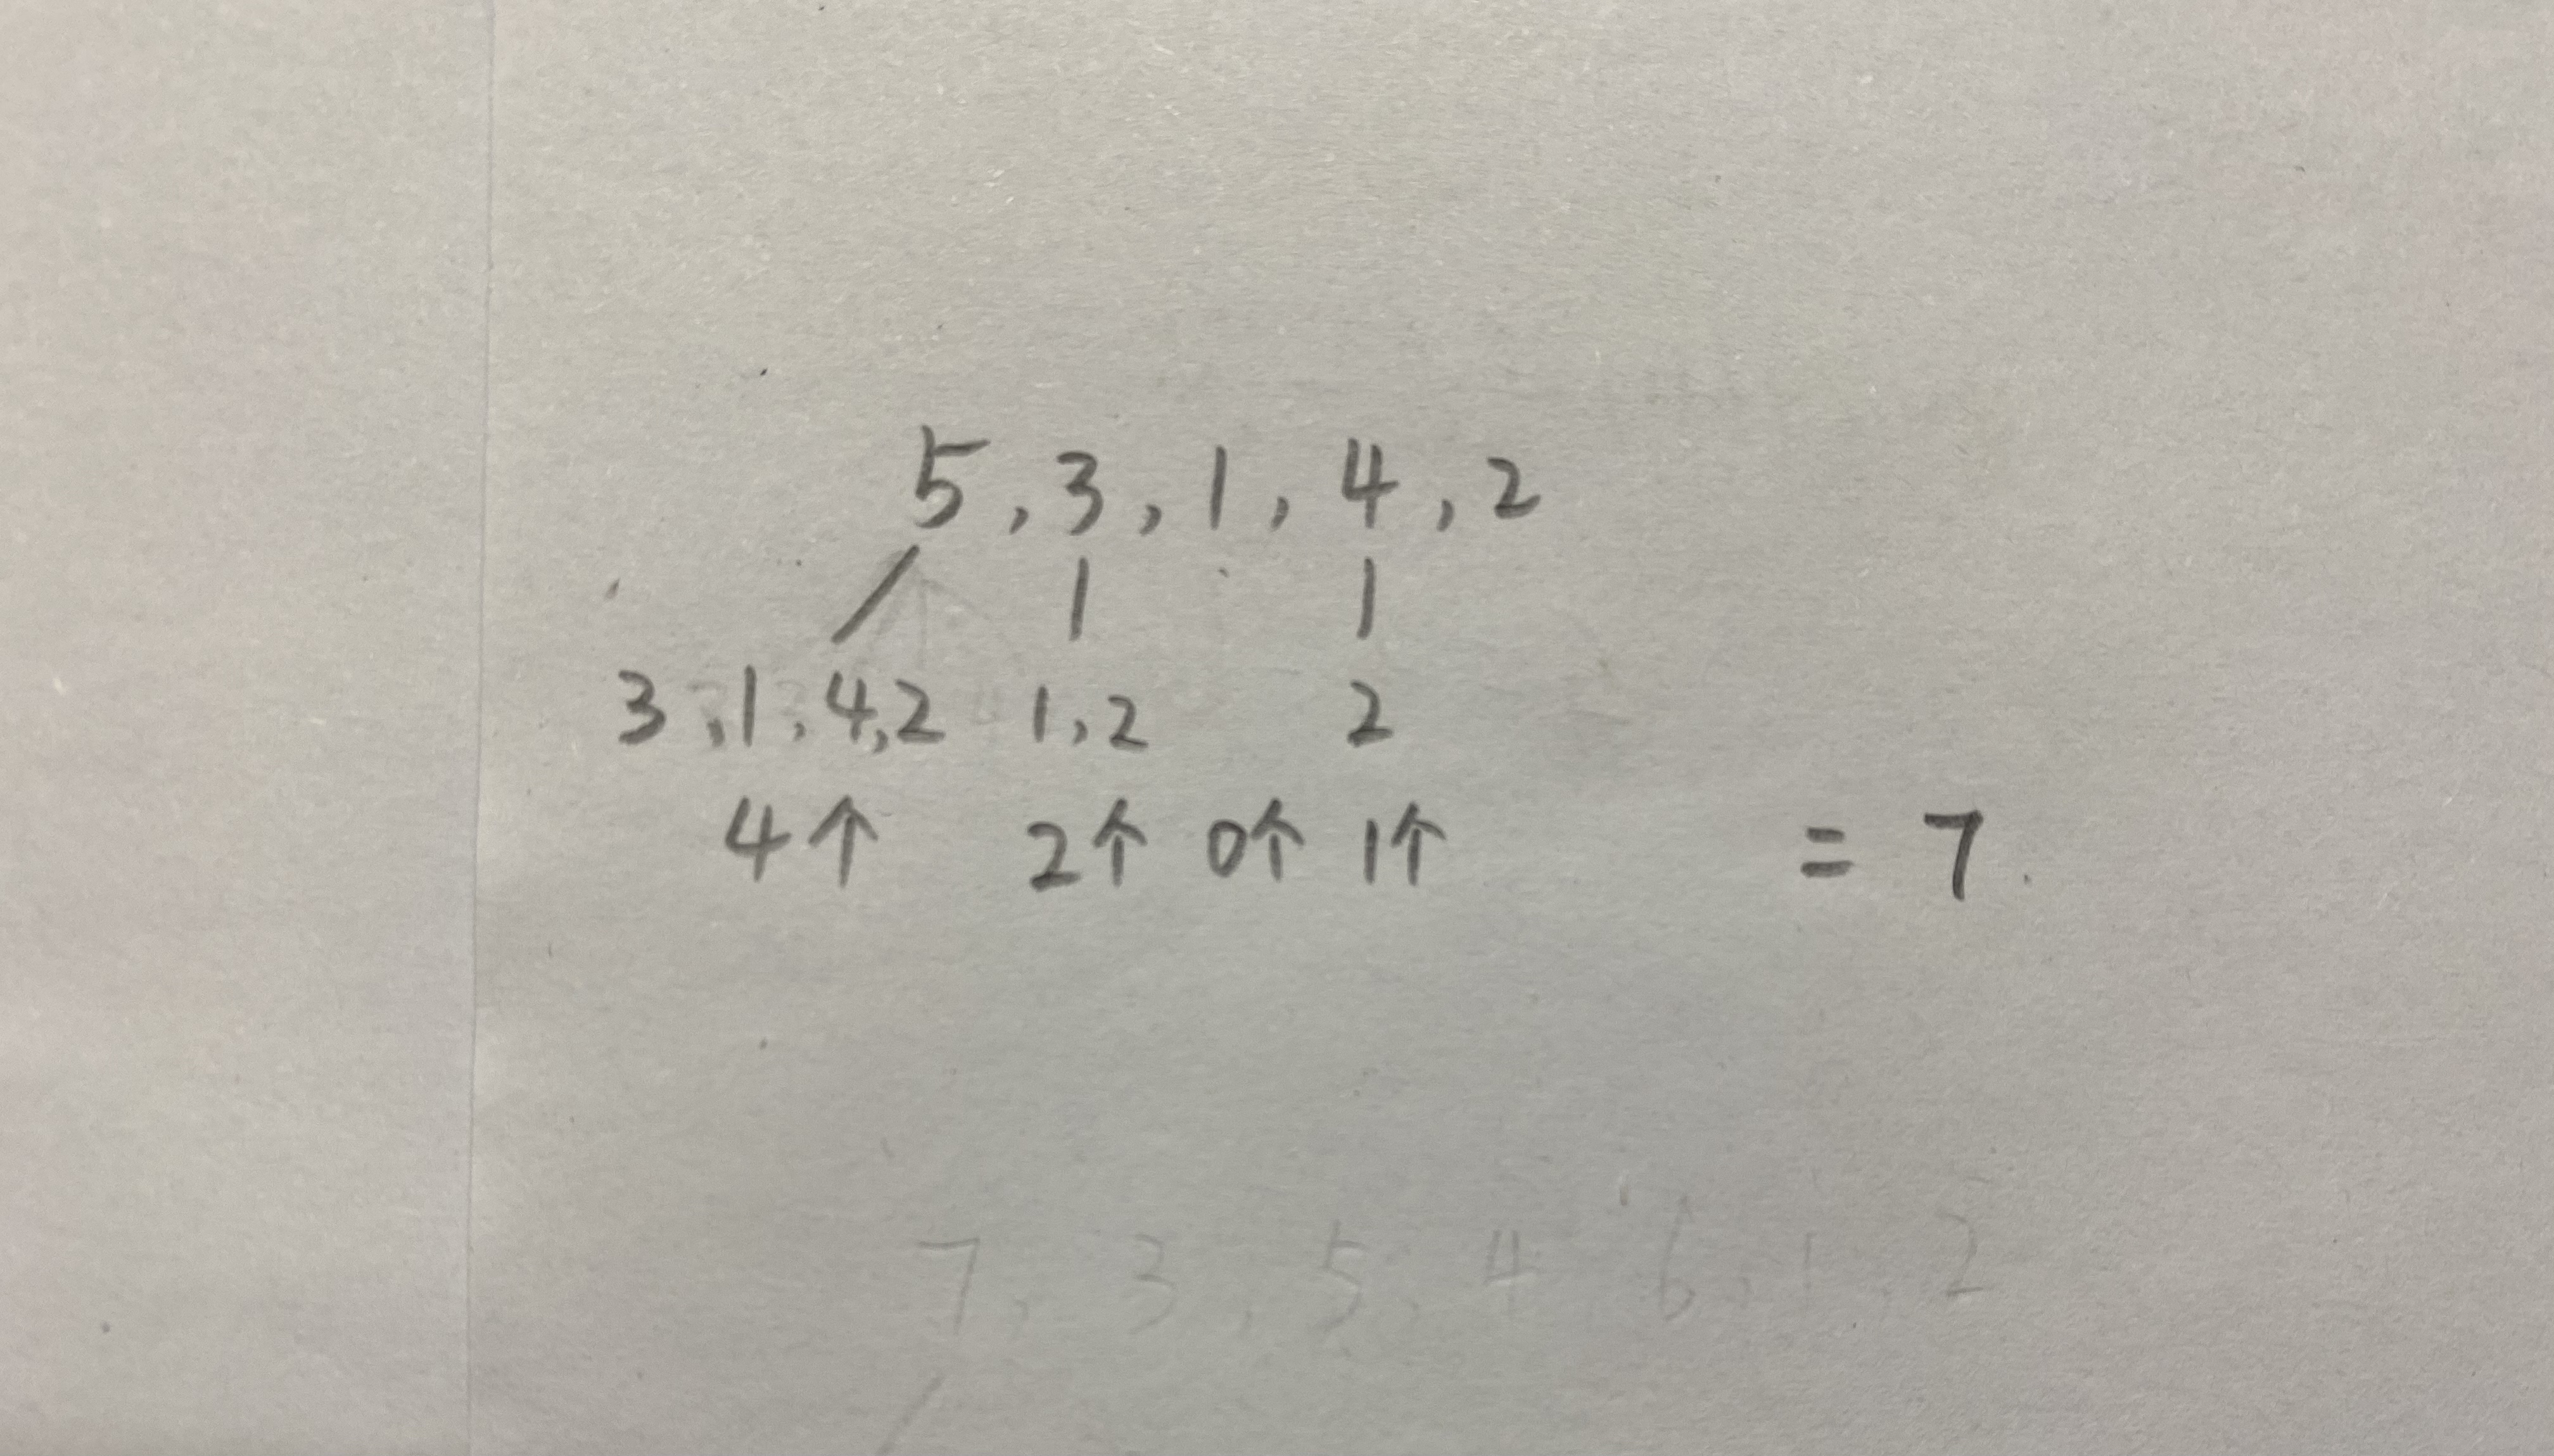 5, 3, 1, 4, 2
3, 1, 4, 2 1, 2 2
4个 2个 0个 1个 = 7
7, 3, 5, 4, 6, 1, 2